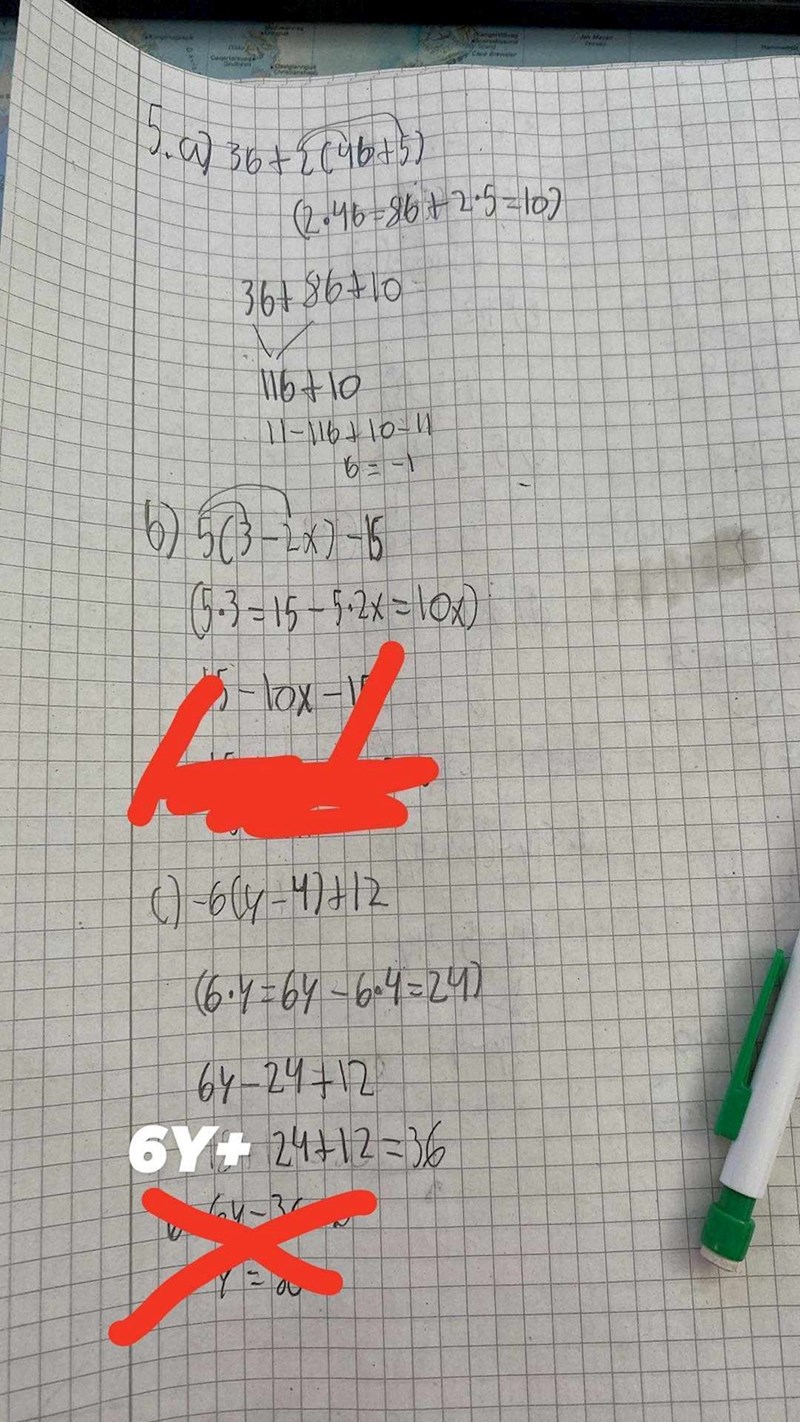 5. a) 3b + 2(4b+5)
(2·4b=8b + 2·5=10)
3b + 8b + 10
11b + 10
11-11b + 10-11
b = -1
b) 5(3 - 2x) - 15
(5·3 = 15 - 5·2x = 10x)
15 - 10x - 15
c) -6(y - 4) + 12
(6·y = 6y - 6·4 = 24)
6y - 24 + 12
6Y+ 24 + 12 = 36
6y - 36
y =